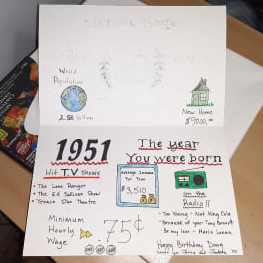 World
Population
2.58 billion
New Home
$9000.00
1951
The year
You were born
Hit T.V Shows
• The Lone Ranger
• The Ed Sullivan Show
• Texaco Star Theatre
Average Income
Per Year
$3,510
on the
Radio!!
Too Young - Nat King Cole
Because of you - Tony Bennett
Be my love - Mario Lanza
Minimum
Hourly
Wage
.75¢
Happy Birthday